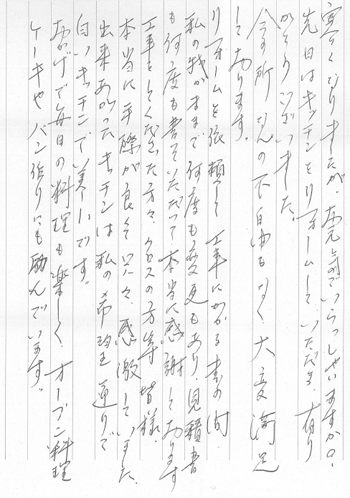 寒くなりましたが、お元気でいらっしゃいますか?
先日はキッチンをリフォームしていただき、有り
がとうございました。
今の所なんの不自由もなく、大変満足
しております。
リフォームを依頼して工事にかかるまでの間
私の我がままで何度も変更もあり、見積書
も何度も書いていただって本当に感謝しております
工事をしてくださった方々、クロスの方等皆様
本当に手際が良く、只々、感激していました。
出来あがったキッチンは私の希望通りで
白いキッチンで美しいです。
おかげで毎日の料理も楽しく、オーブン料理
ケーキやパン作りにも励んでいます。